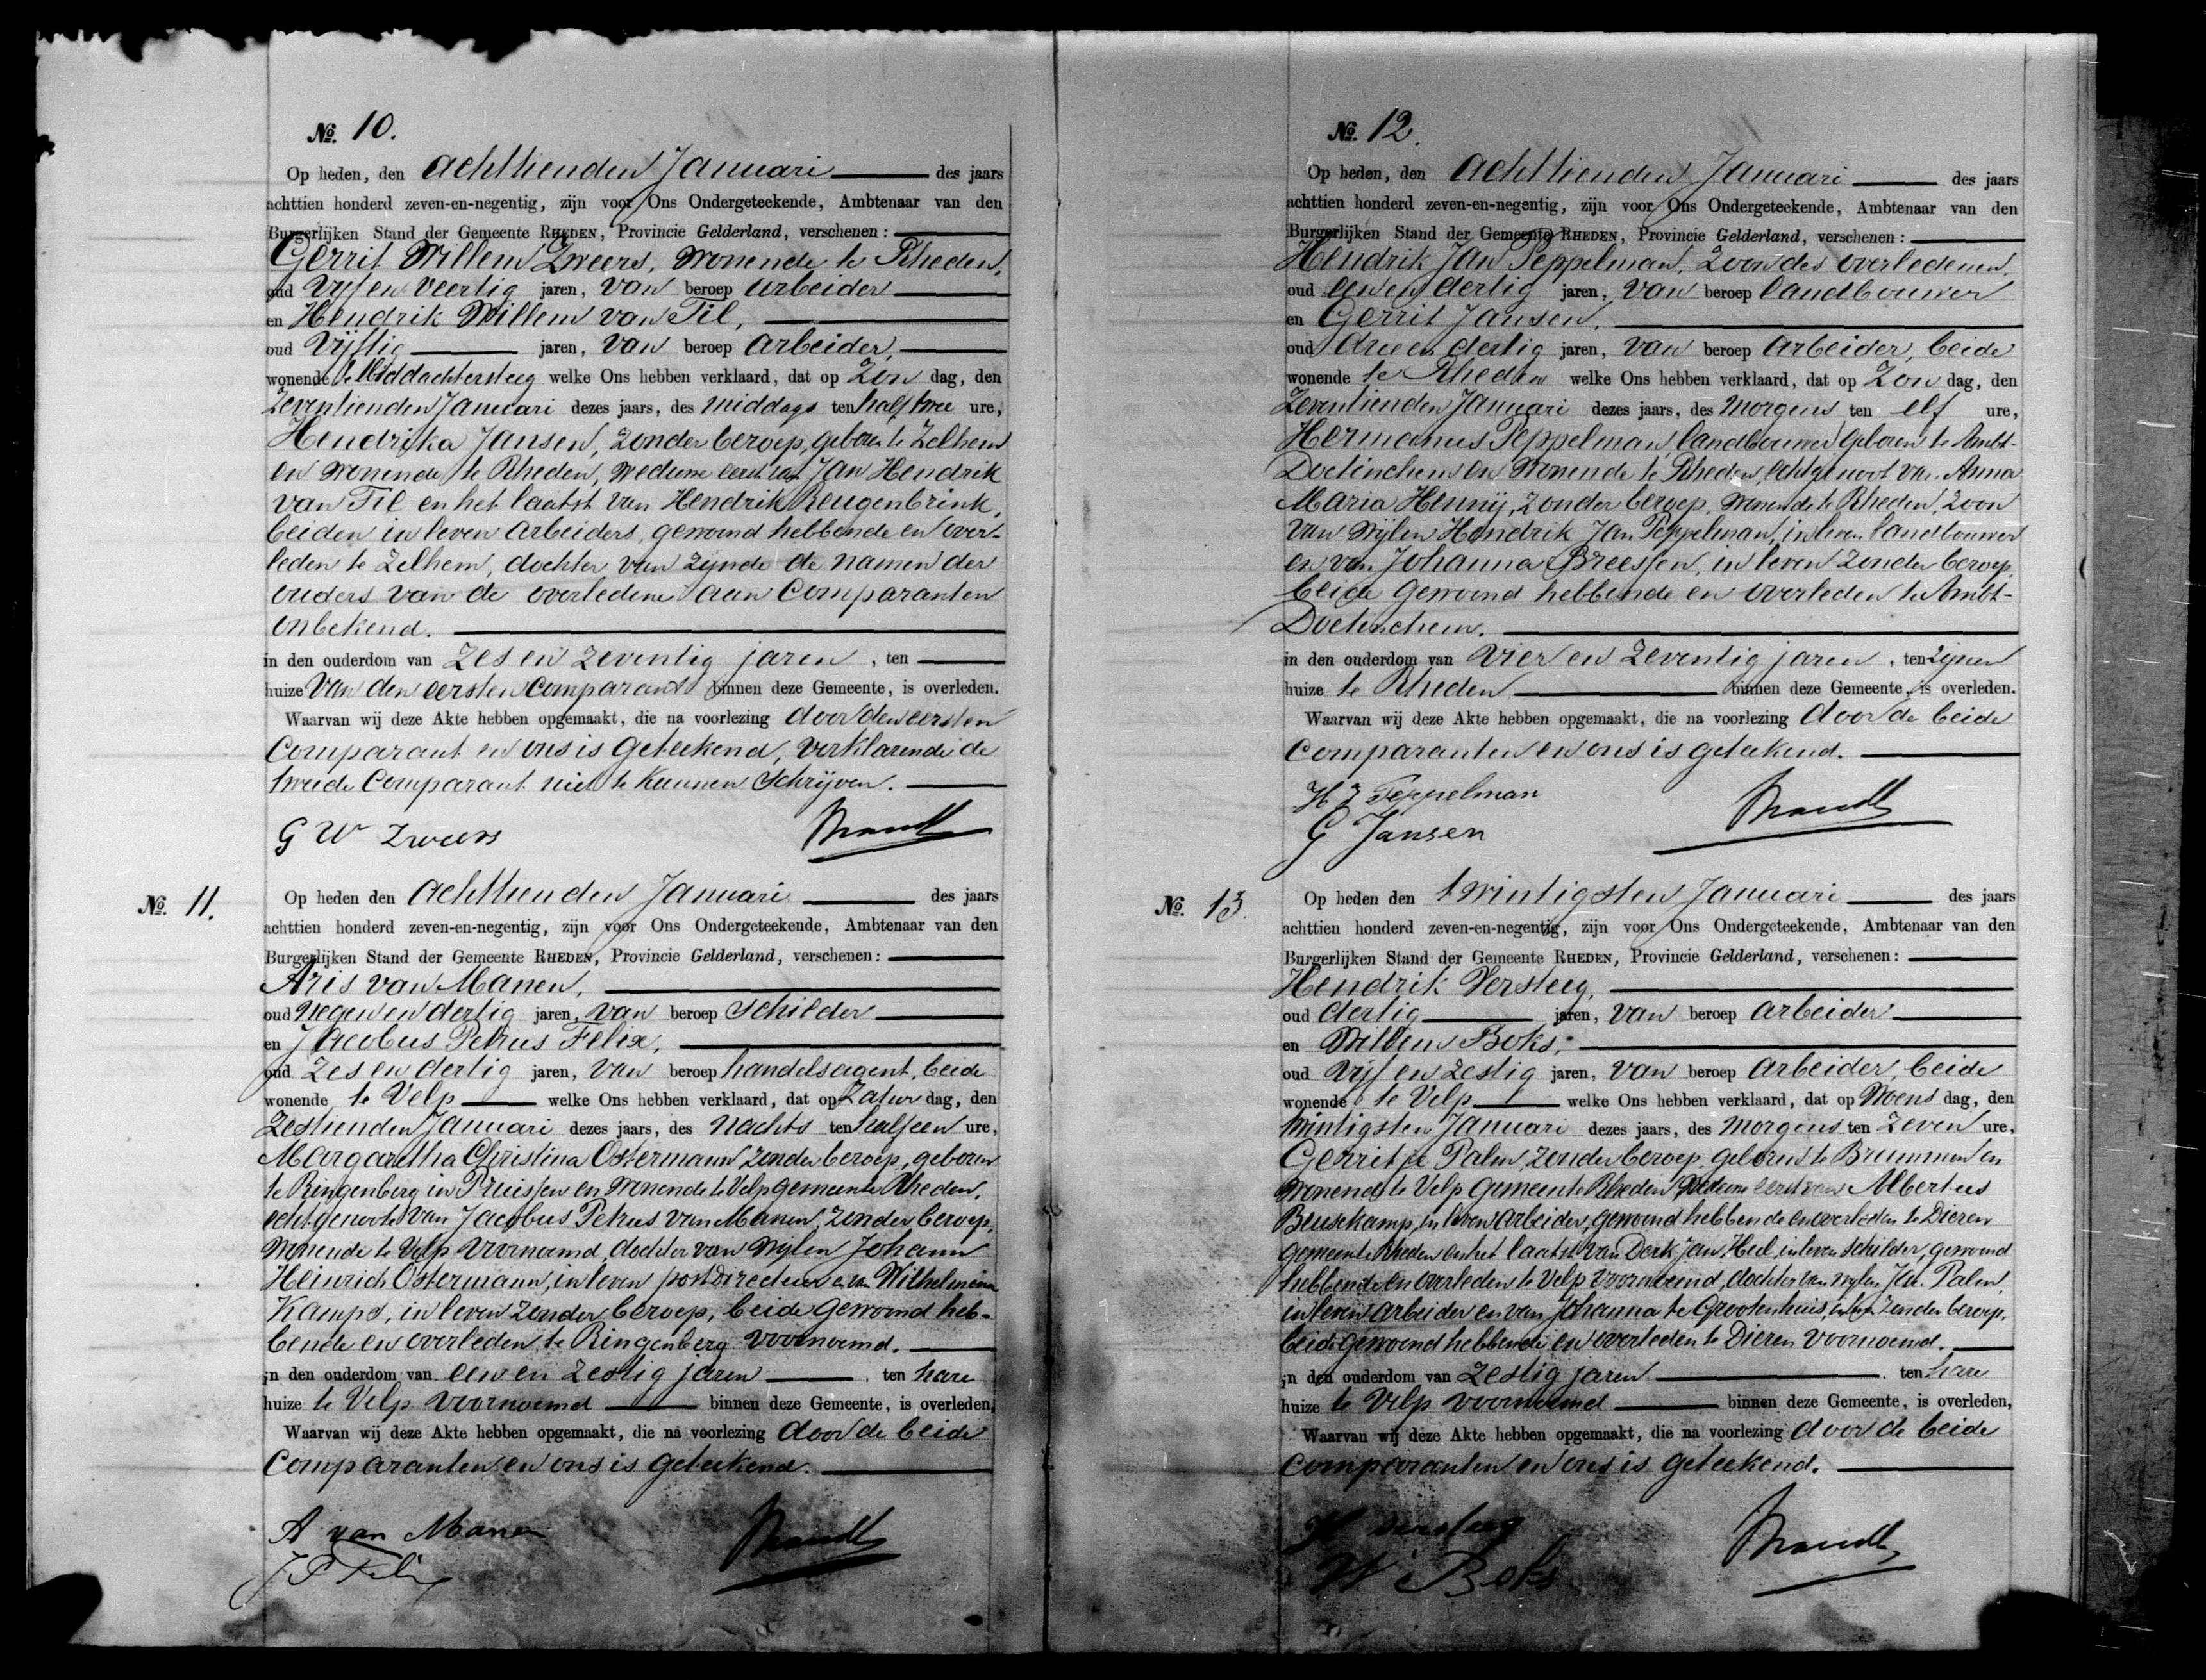 No. 10.
Op heden, den achttienden Januari des jaars
achttien honderd zeven-en-negentig, zijn voor Ons Ondergeteekende, Ambtenaar van den
Burgerlijken Stand der Gemeente RHEDEN, Provincie Gelderland, verschenen:
Gerrit Willem Zweers, wonende te Rheden,
oud vijf en veertig jaren, van beroep arbeider
en Hendrik Willem van Til,
oud vijftig jaren, van beroep arbeider,
wonende te Middachtersteeg welke Ons hebben verklaard, dat op Zon dag, den
zeventienden Januari dezes jaars, des middags ten half twee ure,
Hendrika Jansen, zonder beroep, geboren te Zelhem
en wonende te Rheden, weduwe eerst van Jan Hendrik
van Til en het laatst van Hendrik Reugenbrink,
beiden in leven arbeiders, gewoond hebbende en over-
leden te Zelhem, dochter van zijnde de namen der
ouders van de overledene aan Comparanten
onbekend.
in den ouderdom van zes en zeventig jaren, ten
huize van den eersten Comparant binnen deze Gemeente, is overleden.
Waarvan wij deze Akte hebben opgemaakt, die na voorlezing door den eersten
Comparant en ons is geteekend, verklarende de
tweede Comparant niet te kunnen schrijven.
G W Zweers Brandt
No. 11.
Op heden den achttienden Januari des jaars
achttien honderd zeven-en-negentig, zijn voor Ons Ondergeteekende, Ambtenaar van den
Burgerlijken Stand der Gemeente RHEDEN, Provincie Gelderland, verschenen:
Aris van Manen,
oud negen en dertig jaren, van beroep schilder
en Jacobus Petrus Felix,
oud zes en dertig jaren, van beroep handelsagent, beide
wonende te Velp welke Ons hebben verklaard, dat op Zatur dag, den
zestienden Januari dezes jaars, des nachts ten half een ure,
Margaretha Christina Ostermann, zonder beroep, geboren
te Ringenberg in Pruissen en wonende te Velp gemeente Rheden,
echtgenoote van Jacobus Petrus van Manen, zonder beroep,
wonende te Velp voornoemd, dochter van wijlen Johann
Heinrich Ostermann, in leven postdirecteur en van Wilhelmina
Kamps, in leven zonder beroep, beide gewoond heb-
bende en overleden te Ringenberg voornoemd.
in den ouderdom van een en zestig jaren, ten hare
huize te Velp voornoemd binnen deze Gemeente, is overleden,
Waarvan wij deze Akte hebben opgemaakt, die na voorlezing door de beide
Comparanten en ons is geteekend.
A van Manen Brandt
J P Felix
No. 12.
Op heden, den achttienden Januari des jaars
achttien honderd zeven-en-negentig, zijn voor Ons Ondergeteekende, Ambtenaar van den
Burgerlijken Stand der Gemeente RHEDEN, Provincie Gelderland, verschenen:
Hendrik Jan Peppelman, zoon des overledenen,
oud een en dertig jaren, van beroep landbouwer
en Gerrit Jansen,
oud drie en dertig jaren, van beroep arbeider, beide
wonende te Rheden welke Ons hebben verklaard, dat op Zon dag, den
zeventienden Januari dezes jaars, des morgens ten elf ure,
Hermanus Peppelman, landbouwer, geboren te Ambt-
Doetinchem en wonende te Rheden, echtgenoot van Anna
Maria Hennij, zonder beroep, wonende te Rheden, zoon
van wijlen Hendrik Jan Peppelman, in leven landbouwer
en van Johanna Breessen, in leven zonder beroep,
beide gewoond hebbende en overleden te Ambt-
Doetinchem.
in den ouderdom van vier en zeventig jaren, ten zijnen
huize te Rheden binnen deze Gemeente, is overleden.
Waarvan wij deze Akte hebben opgemaakt, die na voorlezing door de beide
Comparanten en ons is geteekend.
H J Peppelman Brandt
G Jansen
No. 13.
Op heden den twintigsten Januari des jaars
achttien honderd zeven-en-negentig, zijn voor Ons Ondergeteekende, Ambtenaar van den
Burgerlijken Stand der Gemeente RHEDEN, Provincie Gelderland, verschenen:
Hendrik Versteeg,
oud dertig jaren, van beroep arbeider
en Willem Boks,
oud vijf en zestig jaren, van beroep arbeider, beide
wonende te Velp welke Ons hebben verklaard, dat op Woens dag, den
twintigsten Januari dezes jaars, des morgens ten zeven ure,
Gerritje Palm, zonder beroep, geboren te Brummen en
wonende te Velp gemeente Rheden, weduwe eerst van Albertus
Beuwkamp, in leven arbeider, gewoond hebbende en overleden te Dieren
gemeente Rheden en het laatst van Derk Jan Heil, in leven schilder, gewoond
hebbende en overleden te Velp voornoemd, dochter van wijlen Jan Palm,
in leven arbeider en van Johanna te Grootenhuis, in leven zonder beroep,
beide gewoond hebbende en overleden te Dieren voornoemd.
in den ouderdom van zestig jaren, ten hare
huize te Velp voornoemd binnen deze Gemeente, is overleden,
Waarvan wij deze Akte hebben opgemaakt, die na voorlezing door de beide
Comparanten en ons is geteekend.
H versteeg Brandt
W Boks